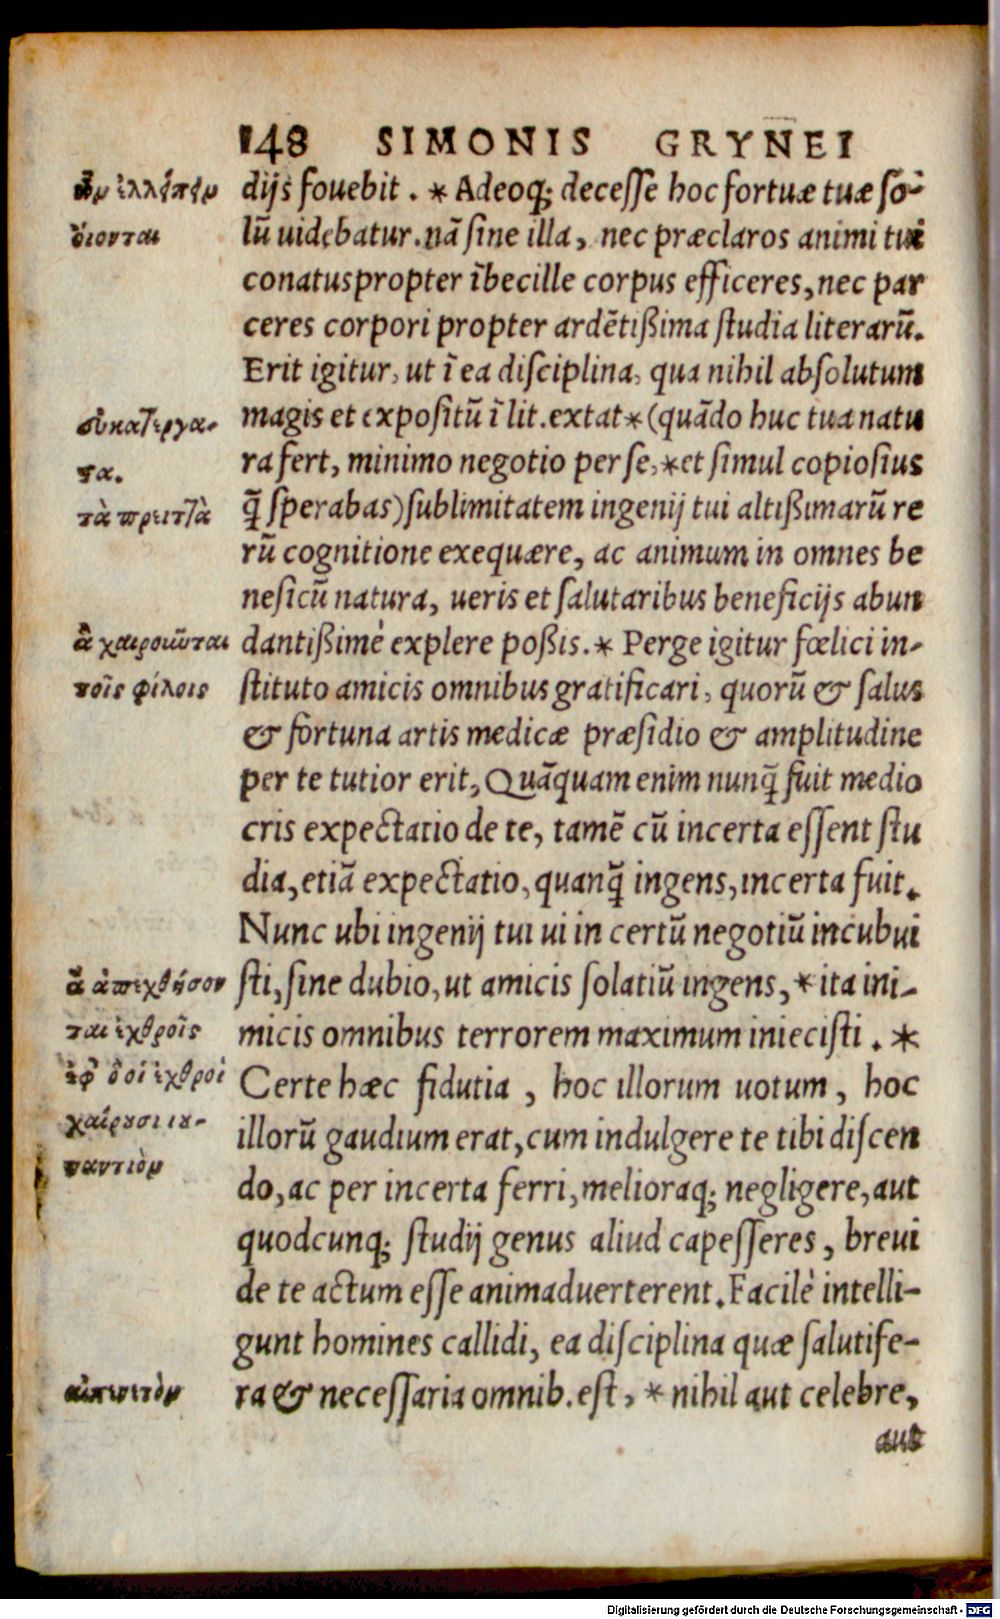 148 SIMONIS GRYNEI
dijs fouebit. * Adeoq; decesse hoc fortuæ tuæ so-
lũ uidebatur. nã sine illa, nec præclaros animi tui
conatus propter ĩbecille corpus efficeres, nec par
ceres corpori propter ardẽtißima studia literarũ.
Erit igitur, ut ĩ ea disciplina, qua nihil absolutum
magis et expositũ ĩ lit. extat * (quãdo huc tua natu
ra fert, minimo negotio per se, * et simul copiosius
q̃ sperabas) sublimitatem ingenij tui altißimarũ re
rũ cognitione exequære, ac animum in omnes be
neficũ natura, ueris et salutaribus beneficijs abun
dantißimè explere poßis. * Perge igitur fœlici in-
stituto amicis omnibus gratificari, quorũ & salus
& fortuna artis medicæ præsidio & amplitudine
per te tutior erit, Quãquam enim nunq̃ fuit medio
cris expectatio de te, tamẽ cũ incerta essent stu
dia, etiã expectatio, quanq̃ ingens, incerta fuit.
Nunc ubi ingenij tui ui in certũ negotiũ incubui
sti, sine dubio, ut amicis solatiũ ingens, * ita ini-
micis omnibus terrorem maximum iniecisti. *
Certe hæc fidutia, hoc illorum uotum, hoc
illorũ gaudium erat, cum indulgere te tibi discen
do, ac per incerta ferri, melioraq; negligere, aut
quodcunq; studij genus aliud capesseres, breui
de te actum esse animaduerterent. Facilè intelli-
gunt homines callidi, ea disciplina quæ salutife-
ra & necessaria omnib. est, * nihil aut celebre,
aut
ὅιονται
τοῖς φίλοις
ἃ ἀπεχθήσον
ται ἐχθροῖς
ἐφ' ὃ οἱ ἐχθροὶ
Digitalisierung gefördert durch die Deutsche Forschungsgemeinschaft - DFG